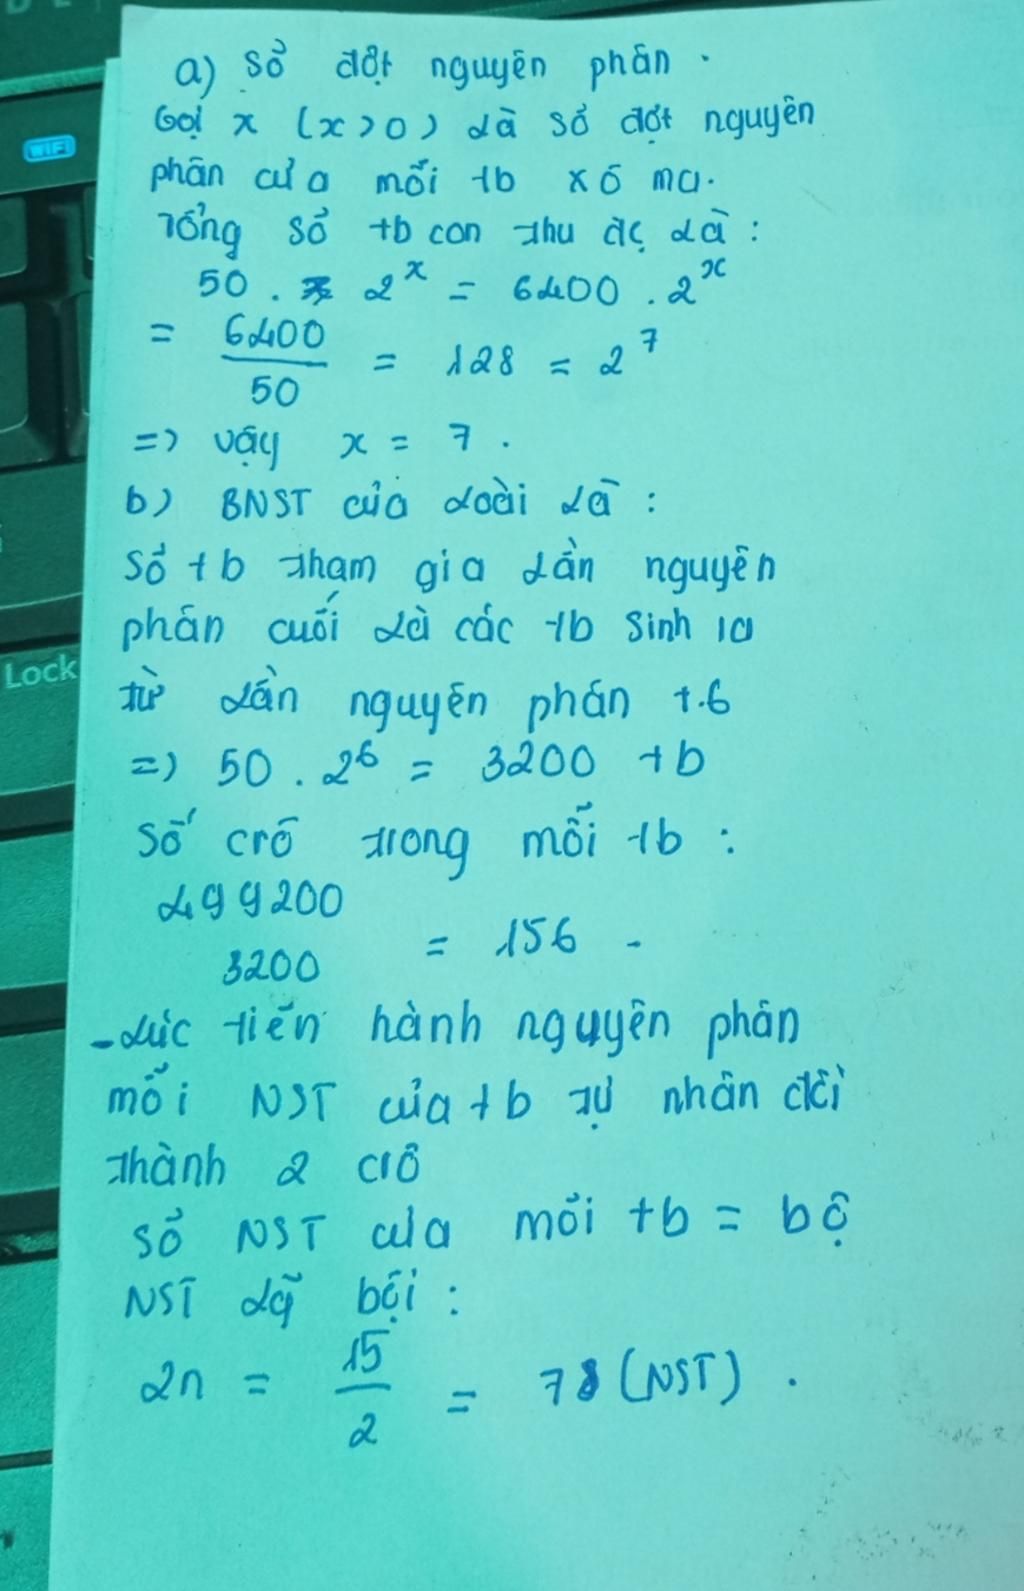 WIFI
Lock
a) Số đợt nguyên phân.
Gọi x (x>0) là số đợt nguyên
phân của mỗi tb xô ma.
Tổng số tb con thu đc là:
50 . 2^x = 6400 . 2^x
= 6400/50 = 128 = 2^7
=> vậy x = 7.
b) BNST của loài là:
Số tb tham gia lần nguyên
phân cuối là các tb sinh ra
từ lần nguyên phân t.6
=> 50 . 2^6 = 3200 tb
Số crô trong mỗi tb:
499200
3200 = 156 -
- Lúc tiến hành nguyên phân
mỗi NST của tb tự nhân đôi
thành 2 crô
số NST của mỗi tb = bộ
NST lg bội:
2n = 15/2 = 78 (NST).